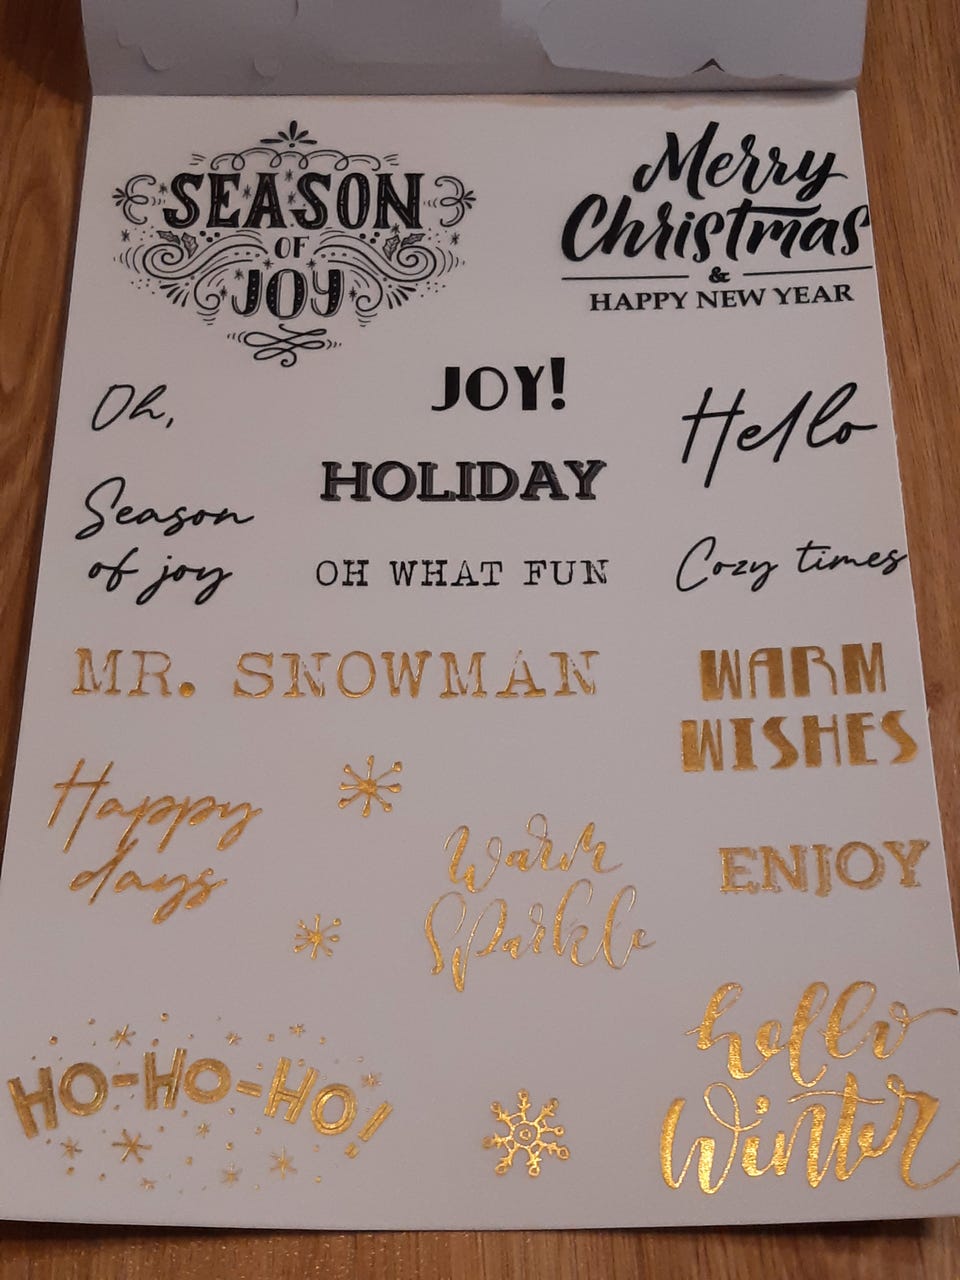 SEASON
OF
JOY
Merry
Christmas
&
HAPPY NEW YEAR
Oh,
JOY!
Hello
HOLIDAY
Season
of joy
OH WHAT FUN
Cozy times
MR. SNOWMAN
WARM
WISHES
Happy
days
Warm
Sparkle
ENJOY
HO-HO-HO!
hello
Winter